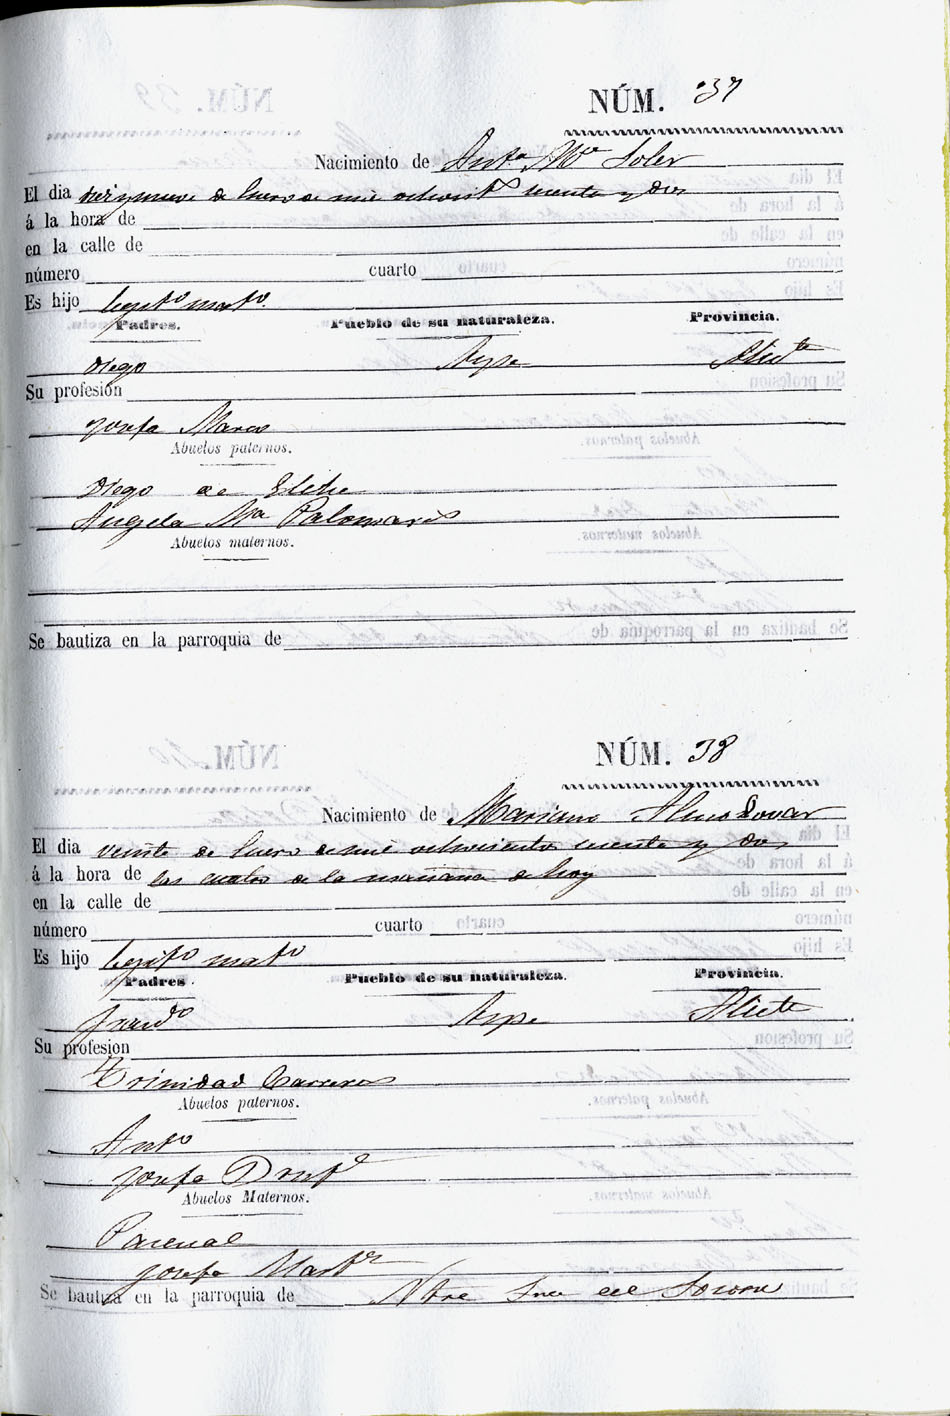 NÚM. 37
Nacimiento de Antª Mª Soler
El dia diez y nueve de Enero de mil ochocitºs sesenta y dos
á la hora de
en la calle de
número cuarto
Es hijo legitº matº
Padres. Pueblo de su naturaleza. Provincia.
Diego Aspe Alicte
Su profesión
Josefa Marco
Abuelos paternos.
Diego de Elche
Angela Mª Palomares
Abuelos maternos.
Se bautiza en la parroquia de
NÚM. 38
Nacimiento de Mariano Almodovar
El dia veinte de Enero de mil ochocientos sesenta y dos
á la hora de las cuatro de la mañana de hoy
en la calle de
número cuarto
Es hijo legitº matº
Padres. Pueblo de su naturaleza. Provincia.
Aspe Alicte
Su profesion
Trinidad Carreres
Abuelos paternos.
Antº
Josefa
Abuelos Maternos.
Pascual
Josefa Martz
Se bautiza en la parroquia de Ntra Sra del Socorro